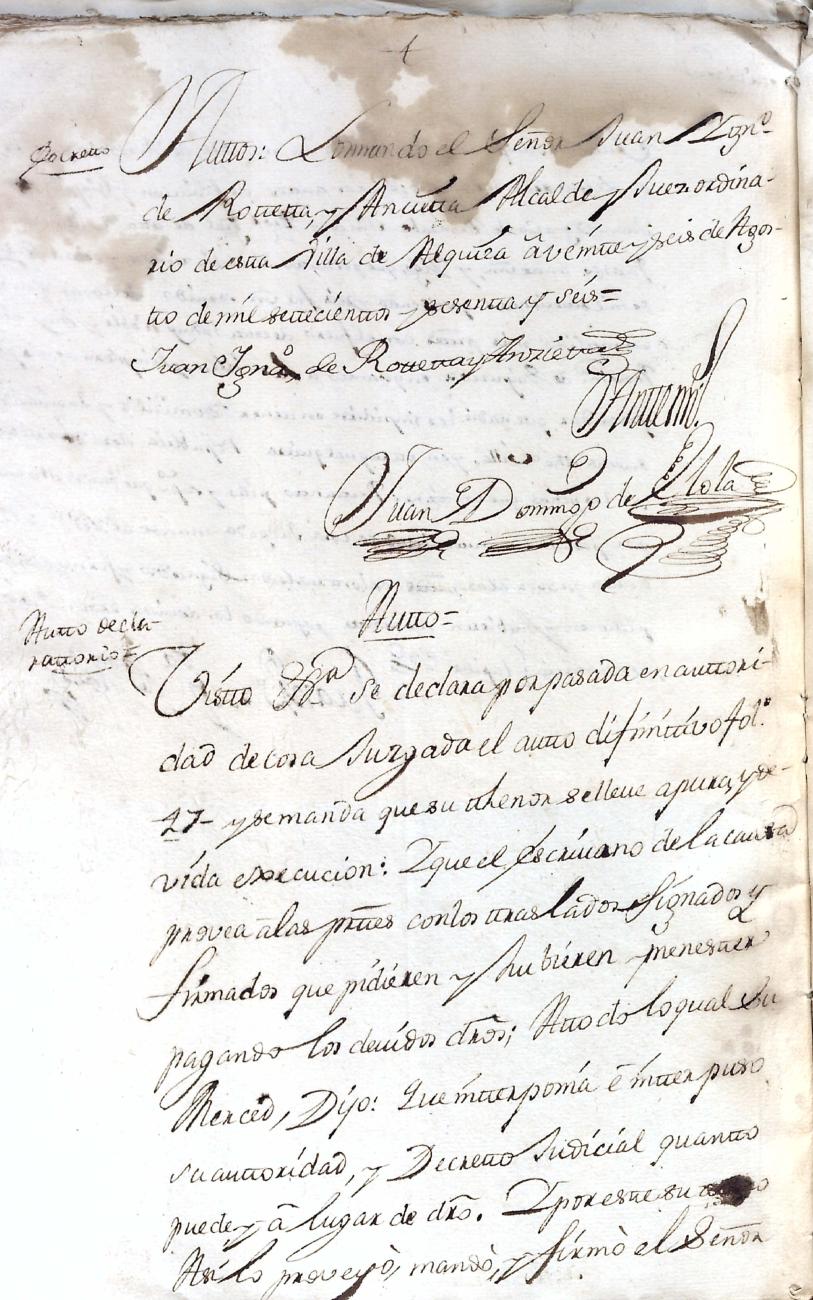 Decretto
Auttos: Lo mando el Señor Juan Ygnº.
de Rottetta, y Ancietta Alcalde y Juez ordina-
rio de estta Villa de Alquiza â veintte y seis de Agos-
tto de mil settecienttos y sesentta y seis=
Juan Ignº. de Rottetta y Anzietta
Antte mi.
Juan Domingo de Olola
Autto=
Autto decla-
rattorio=
Visttto se declara por pasada en auttori-
dad de cosa Juzgada el autto difinittivo folº.
27- y se manda que su tthenor se lleve a pura, y de-
vida execucion: Y que el Escrivano de la causa
provea â las prttes con los ttraslados Signados y
firmados que pidieren y hubieren menestter
pagando los devidos dros; Atto do lo qual Su
Merced, Dijo: Que intterponia ê intterpuso
su auttoridad, y Decretto Judicial quantto
puede, y â lugar de dro. Y por estte su
Asi lo proveyò, mandò, y firmò el Señor